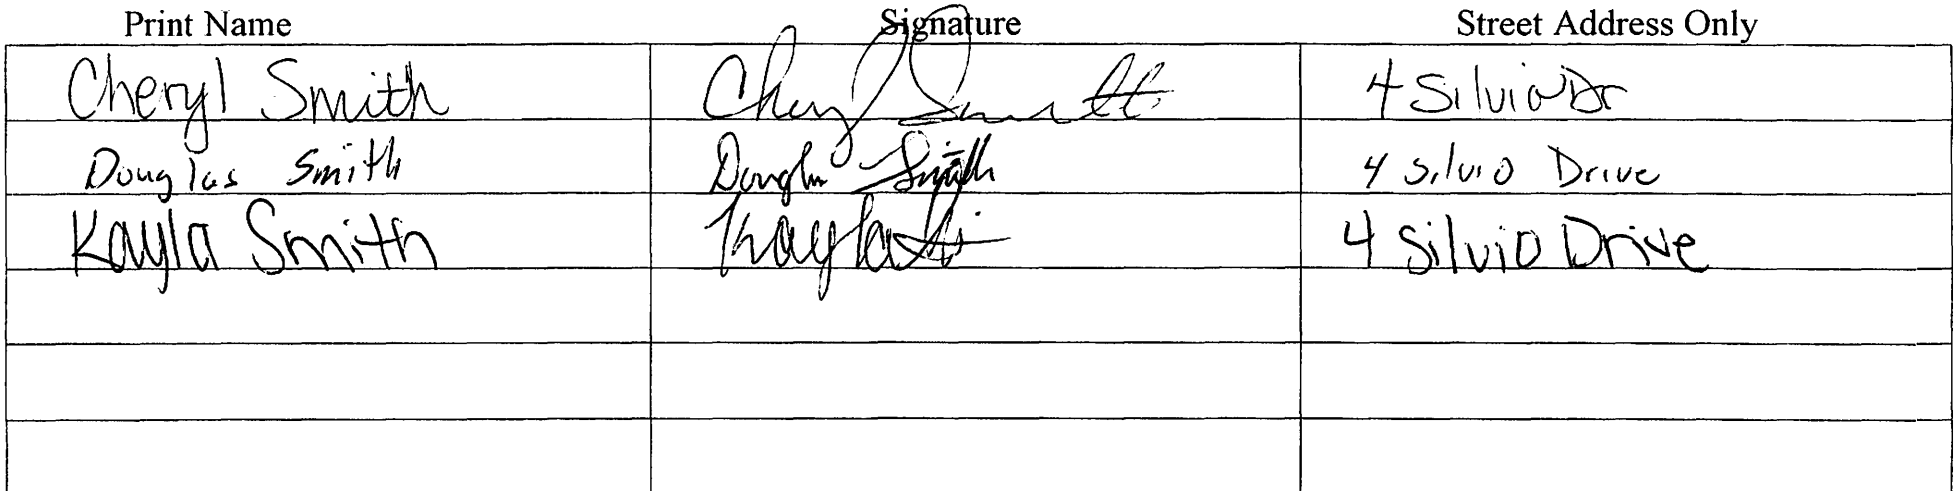 Print Name Signature Street Address Only
Cheryl Smith Cheryl Smith 4 Silvio Dr
Douglas Smith Douglas Smith 4 Silvio Drive
Kayla Smith Kayla 4 Silvio Drive